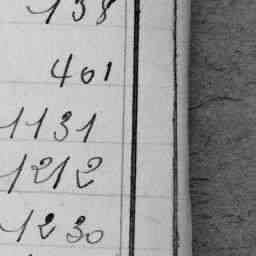 138
401
1131
1212
1230